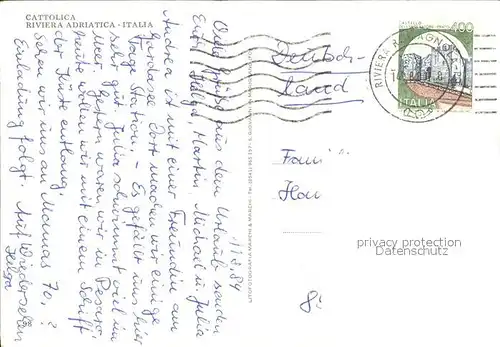 CATTOLICA
RIVIERA ADRIATICA - ITALIA
11.8.84
Grüsse aus dem Urlaub senden
Euch Helga, Martin, Michael u. Julia
Andrea ist mit einer Freundin am
Gardasee. Dort machen wir einige
Tage Station. - Es gefällt uns hier
sehr gut. Julia schwimmt viel im
Meer. Gestern waren wir in Pesaro,
heute wollen wir mit einem Schiff
der Küste entlang.
Sehen wir uns an Mamas 70.?
Einladung folgt. Auf Wiedersehen
Helga
Deutsch-
land
400
ITALIA
RIVIERA
Frau
privacy protection
Datenschutz